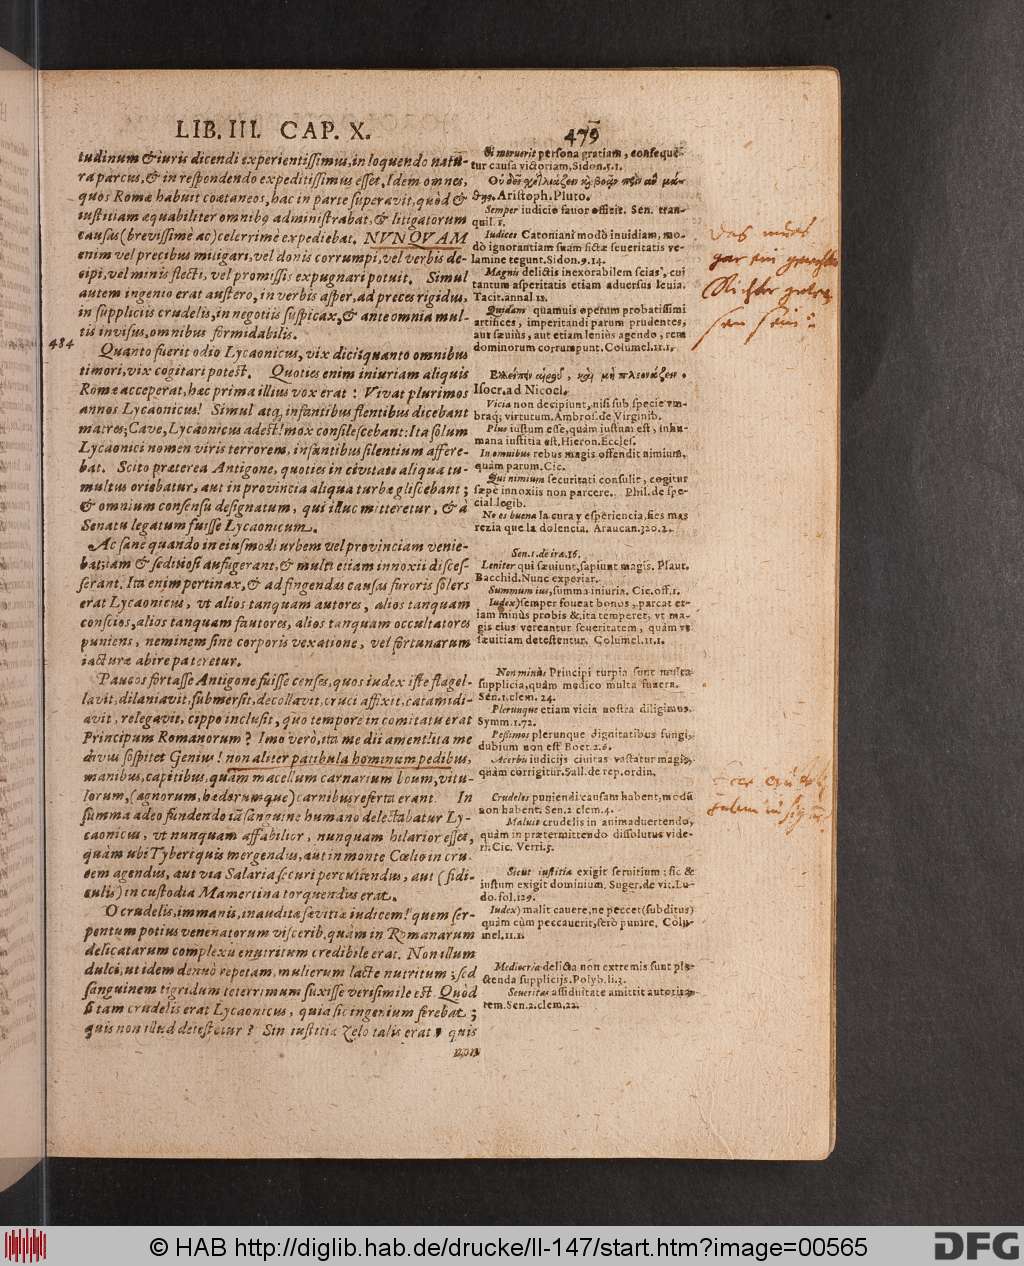 LIB. III. CAP. X.
479
tudinum & iuris dicendi experientissimus, in loquendo natu-
ra parcus, & in respondendo expeditissimus esset. Idem omnes,
quos Romæ habuit coætaneos, hac in parte superavit, quòd &
iustitiam æquabiliter omnibꝰ administrabat, & litigatorum
causas (brevissimè ac) celerrimè expediebat. NVNQVAM
enim vel precibus mitigari, vel donis corrumpi, vel verbis de-
cipi, vel minis flecti, vel promissis expugnari potuit. Simul
autem ingenio erat austero, in verbis asper, ad preces rigidus,
in suppliciis crudelis, in negotiis suspicax, & ante omnia mul-
tis invisus, omnibus formidabilis.
484
Quanto fuerit odio Lycaonicus, vix dici; quanto omnibus
timori, vix cogitari potest. Quoties enim iniuriam aliquis
Romæ acceperat, hæc prima illius vox erat: Vivat plurimos
annos Lycaonicus! Simul atq; infantibus flentibus dicebant
matres; Cave, Lycaonicus adest! mox consilescebant: Ita solum
Lycaonici nomen viris terrorem, infantibus silentium affere-
bat. Scito præterea Antigone, quoties in civitate aliqua tu-
multus oriebatur, aut in provincia aliqua turbæ gliscebant;
& omnium consensu designatum, qui illuc mitteretur, & à
Senatu legatum fuisse Lycaonicum.
Ac sane quando in eiusmodi urbem vel provinciam venie-
bat; iam & seditiosi aufugerant, & multi etiam innoxii disces-
serant. Ita enim pertinax, & ad fingendas causas furoris solers
erat Lycaonicus, vt alios tanquam autores, alios tanquam
conscios, alios tanquam fautores, alios tanquam occultatores
puniens, neminem sine corporis vexatione, vel fortunarum
iacturæ abire pateretur.
Paucos fortasse Antigone fuisse censes, quos iudex iste flagel-
lavit, dilaniavit, submersit, decollavit, cruci affixit, catamidi-
avit, relegavit, cippo inclusit, quo tempore in comitatu erat
Principum Romanorum? Imo verò, ita me dii ament! ita me
divus sospitet Genius! non aliter patibula hominum pedibus,
manibus, capitibus, quàm macellum carnarium boum, vitu-
lorum, (agnorum, hædorumque) carnibus referta erant. In
summa adeo fundendo iā sanguine humano delectabatur Ly-
caonicus, vt nunquam affabilior, nunquam hilarior esset,
quàm ubi Tyberi quis mergendus, aut in monte Cœlio in cru-
cem agendus, aut via Salaria securi percutiendus, aut (fidi-
culis) in custodia Mamertina torquendus erat.
O crudelis, immanis, inauditæ sævitiæ iudicem! quem ser-
pentum potius venenatorum viscerib. quàm in Romanarum
delicatarum complexu enutritum credibile erat. Non illum
dulci, ut idem denuò repetam, mulierum lacte nutritum; sed
sanguinem tigridum teterrimum suxisse verisimile est. Quòd
si tam crudelis erat Lycaonicus, quia sic ingenium ferebat;
quis non illud detestetur? Sin iustitiæ Zelo talis erat, quis
non
Si meruerit persona gratiam, conseque-
tur causa victoriam. Sidon.
&ης. Aristoph. Pluto.
Semper iudicio fauor officit. Sen. tran-
quil. 1.
Iudices Catoniani modò inuidiam, mo-
dò ignorantiam suam fictæ seueritatis ve-
lamine tegunt. Sidon. 9. 14.
Magnis delictis inexorabilem scias, cui
tantum asperitatis etiam aduersus leuia.
Tacit. annal 12.
Quidam quamuis operum probatissimi
artifices, imperitandi parum prudentes,
aut sæuiùs, aut etiam leniùs agendo, rem
dominorum corrumpunt. Columel. 11. 1.
Isocr. ad Nicocl.
Vicia non decipiunt, nisi sub specie vm-
braq; virtutum. Ambros. de Virginib.
Plus iustum esse, quàm iustum est, inhu-
mana iustitia est. Hieron. Eccles.
In omnibus rebus magis offendit nimium,
quàm parum. Cic.
Qui nimium securitati consulit, cogitur
sæpe innoxiis non parcere. Phil. de spe-
cial. legib.
No es buena la cura y esperiencia, si es mas
rezia que la dolencia. Araucan. 320. 2.
Sen. 1. de ira. 16.
Leniter qui sæuiunt, sapiunt magis. Plaut.
Bacchid. Nunc experiar.
Summum ius, summa iniuria. Cic. off. 1.
Iudex) semper foueat bonos, parcat et-
iam minùs probis & ita temperet, vt ma-
gis eius vereantur seueritatem, quàm vt
sæuitiam detestentur. Columel. 11. 1.
Non minùs Principi turpia sunt multa
supplicia, quàm medico multa funera.
Sen. 1. clem. 24.
Plerunque etiam vicia nostra diligimus.
Symm. 1. 72.
Pessimos plerunque dignitatibus fungi,
dubium non est Boet. 2. 6.
Acerbis iudicijs ciuitas vastatur magis,
quàm corrigitur. Sall. de rep. ordin.
Crudeles puniendi causam habent, modū
non habent. Sen. 2 clem. 4.
Maluit crudelis in animaduertendo,
quàm in prætermittendo dissolutus vide-
ri. Cic. Verr. 5.
Sicut iustitia exigit seruitium; sic &
iustum exigit dominium. Suger. de vit. Lu-
do. fol. 129.
Iudex) malit cauere, ne peccet (subditus)
quàm cùm peccauerit, serò punire. Colu-
mel. 11. 1.
Mediocria delicta non extremis sunt ple-
ctenda supplicijs. Polyb. li. 3.
Seueritas assiduitate amittit autorita-
tem. Sen. 2. clem. 22.
gar ein gerechter
Richter gewe-
sen sein
© HAB http://diglib.hab.de/drucke/ll-147/start.htm?image=00565
DFG